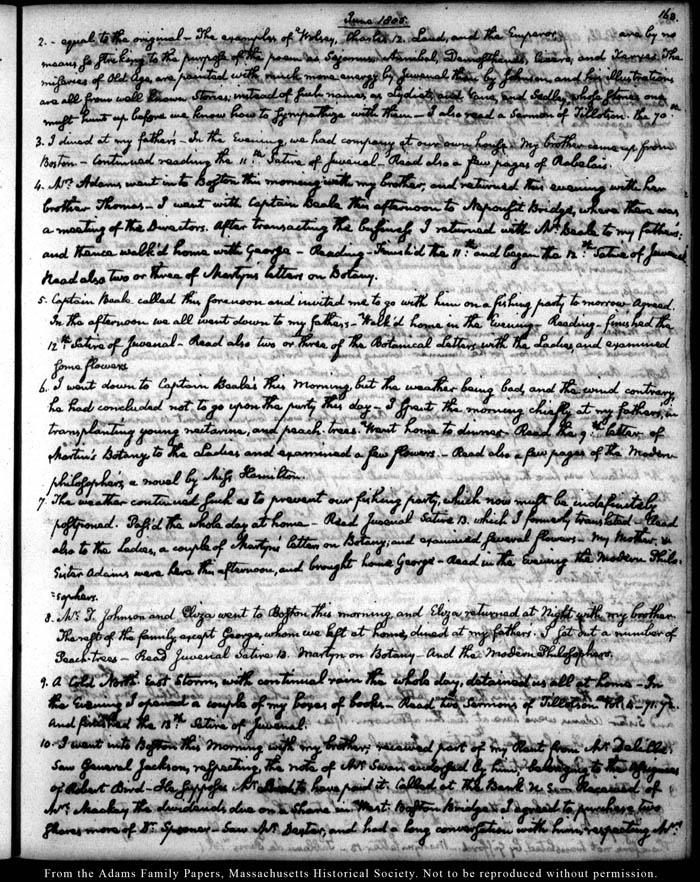 June 1805.
160.
2. - equal to the original - The examples of Wolsey, Charles 12. Laud, and the Emperor, are by no
means so striking to the purpose of the poem as Sejanus, Hannibal, Demosthenes, Cicero, and Xerxes. The
miseries of Old Age, are painted with much more energy by Juvenal than by Johnson, and his illustrations
are all from well known Stories; instead of such names as Lydiat, and Vane, and Sedley, whose stories one
must hunt up before we know how to sympathize with them - I also read a Sermon of Tillotson. the 70.th
3. I dined at my father's - In the Evening we had company at our own house - My brother came up from
Boston - Continued reading the 11th Satire of Juvenal - Read also a few pages of Rabelais.
4. Mrs. Adams went into Boston this morning with my brother, and returned this evening with her
brother Thomas - I went with Captain Beale this afternoon to Neponset Bridge, where there was
a meeting of the Directors. After transacting the business I returned with Mr. Beale to my father's;
and thence walk'd home with George - Reading - Finish'd the 11th and began the 12th Satire of Juvenal
Read also two or three of Martyn's letters on Botany.
5. Captain Beale called this forenoon and invited me to go with him on a fishing party to morrow - Agreed.
In the afternoon we all went down to my father's - Walk'd home in the Evening - Reading - finished the
12th Satire of Juvenal - Read also two or three of the Botanical Letters with the Ladies, and examined
some flowers.
6. I went down to Captain Beale's this Morning, but the weather being bad, and the wind contrary,
he had concluded not to go upon the party this day - I spent the morning chiefly at my father's, in
transplanting young nectarine, and peach-trees. Went home to dinner - Read the 9th letter of
Martin's Botany to the Ladies and examined a few flowers. - Read also a few pages of the Modern
philosophers, a novel by Miss Hamilton.
7. The weather continued such as to prevent our fishing party, which now must be indefinitely
postponed. Pass'd the whole day at home - Read Juvenal Satire 13. which I formerly translated - Read
also to the Ladies, a couple of Martyns' letters on Botany; and examined several flowers - My Mother, &
Sister Adams were here this afternoon, and brought home George - Read in the Evening the Modern Philo-
=sophers.
8. Mr. T. Johnson and Eliza went to Boston this morning and Eliza returned at Night with my brother.
The rest of the family except George, whom we left at home, dined at my father's. I set out a number of
Peach-trees - Read Juvenal Satire 13. Martyn on Botany - And the Modern Philosophers.
9. A Cold North East Storm, with continual rain the whole day, detained us all at home - In
the Evening I opened a couple of my boxes of books - Read two Sermons of Tillotson Vol. 4 - 71. 72.
And finished the 13th Satire of Juvenal.
10. I went into Boston this Morning with my brother; received part of my Rent from Mr.
Saw General Jackson, respecting the note of Mr. Swan endorsed by him, belonging to the Assignees
of Robert Bird - He supposes Mr. to have paid it. Called at the Bank U. S. Received of
Mrs. Mackay the dividends due on a Share in West Boston Bridge - I agreed to purchase two
Shares more of Dr. Spooner - Saw Mr. Dexter, and had a long conversation with him, respecting Mr.
From the Adams Family Papers, Massachusetts Historical Society. Not to be reproduced without permission.